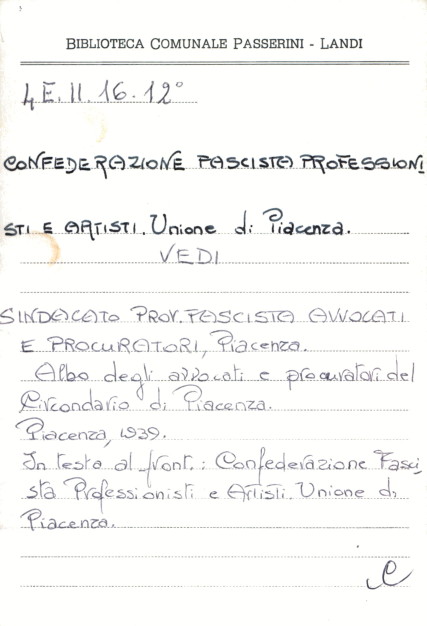 BIBLIOTECA COMUNALE PASSERINI - LANDI
4E.II.16.12°
CONFEDERAZIONE FASCISTA PROFESSIONI
STI E ARTISTI. Unione di Piacenza.
VEDI
SINDACATO PROV. FASCISTA AVVOCATI
E PROCURATORI, Piacenza.
Albo degli avvocati e procuratori del
Circondario di Piacenza.
Piacenza, 1939.
In testa al front.: Confederazione Fasci
sta Professionisti e Artisti. Unione di
Piacenza.